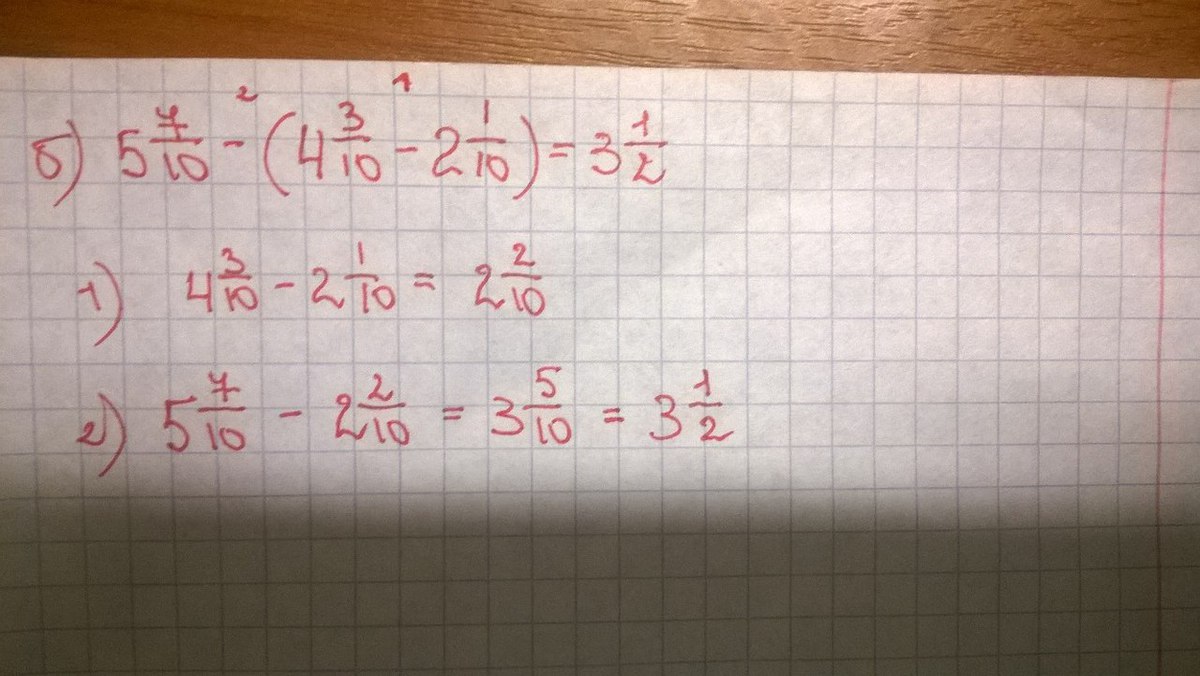 б) 5 7/10 - (4 3/10 - 2 1/10) = 3 1/2
1) 4 3/10 - 2 1/10 = 2 2/10
2) 5 7/10 - 2 2/10 = 3 5/10 = 3 1/2